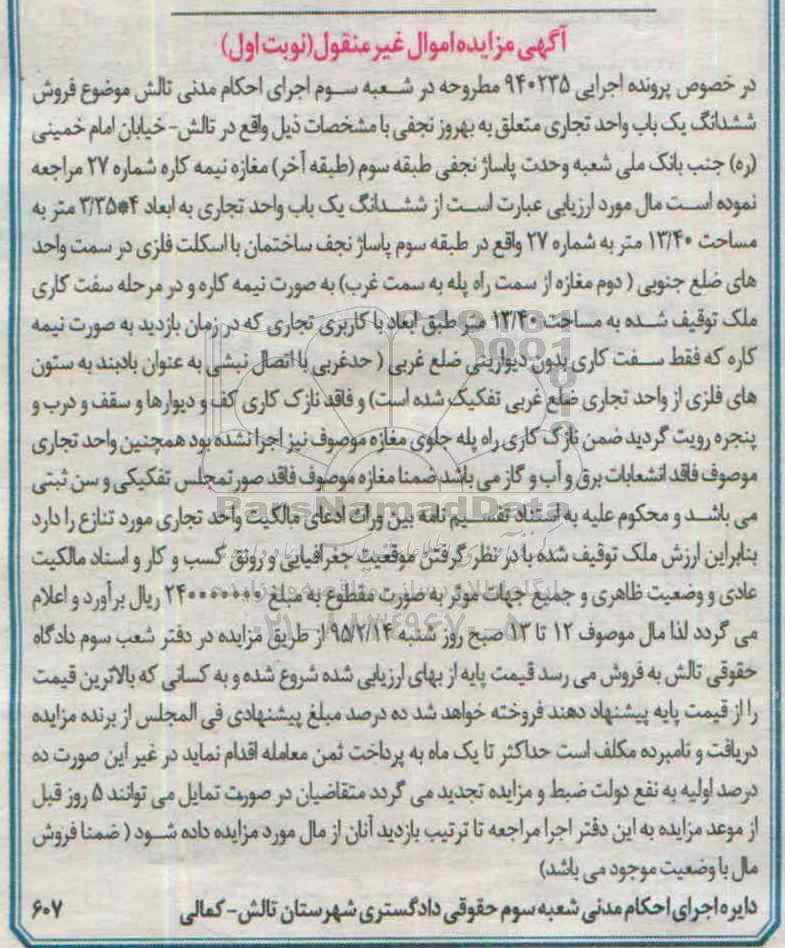 آگهی مزایده اموال غیر منقول(نوبت اول)
در خصوص پرونده اجرایی ۹۴۰۲۳۵ مطروحه در شعبه سوم اجرای احکام مدنی تالش موضوع فروش
ششدانگ یک باب واحد تجاری متعلق به بهروز نجفی با مشخصات ذیل واقع در تالش- خیابان امام خمینی
(ره) جنب بانک ملی شعبه وحدت پاساژ نجفی طبقه سوم (طبقه آخر) مغازه نیمه کاره شماره ۲۷ مراجعه
نموده است مال مورد ارزیابی عبارت است از ششدانگ یک باب واحد تجاری به ابعاد ۴*۳/۳۵ متر به
مساحت ۱۳/۴۰ متر به شماره ۲۷ واقع در طبقه سوم پاساژ نجف ساختمان با اسکلت فلزی در سمت واحد
های ضلع جنوبی ( دوم مغازه از سمت راه پله به سمت غرب) به صورت نیمه کاره و در مرحله سفت کاری
ملک توقیف شده به مساحت ۱۳/۴۰ متر طبق ابعاد با کاربری تجاری که در زمان بازدید به صورت نیمه
کاره که فقط سفت کاری بدون دیوارینی ضلع غربی ( حدغربی با اتصال نبشی به عنوان بادبند به ستون
های فلزی از واحد تجاری ضلع غربی تفکیک شده است) و فاقد نازک کاری کف و دیوارها و سقف و درب و
پنجره رویت گردید ضمن نازک کاری راه پله جلوی مغازه موصوف نیز اجرا نشده بود همچنین واحد تجاری
موصوف فاقد انشعابات برق و آب و گاز می باشد ضمنا مغازه موصوف فاقد صورتمجلس تفکیکی و سن ثبتی
می باشد و محکوم علیه به استناد تقسیم نامه بین وراث ادعای مالکیت واحد تجاری مورد تنازع را دارد
بنابراین ارزش ملک توقیف شده با در نظر گرفتن موقعیت جغرافیایی و رونق کسب و کار و اسناد مالکیت
عادی و وضعیت ظاهری و جمیع جهات موثر به صورت مقطوع به مبلغ ۲۴۰۰۰۰۰۰۰ ریال برآورد و اعلام
می گردد لذا مال موصوف ۱۲ تا ۱۳ صبح روز شنبه ۹۵/۲/۱۴ از طریق مزایده در دفتر شعب سوم دادگاه
حقوقی تالش به فروش می رسد قیمت پایه از بهای ارزیابی شده شروع شده و به کسانی که بالاترین قیمت
را از قیمت پایه پیشنهاد دهند فروخته خواهد شد ده درصد مبلغ پیشنهادی فی المجلس از برنده مزایده
دریافت و نامبرده مکلف است حداکثر تا یک ماه به پرداخت ثمن معامله اقدام نماید در غیر این صورت ده
درصد اولیه به نفع دولت ضبط و مزایده تجدید می گردد متقاضیان در صورت تمایل می توانند ۵ روز قبل
از موعد مزایده به این دفتر اجرا مراجعه تا ترتیب بازدید آنان از مال مورد مزایده داده شود ( ضمنا فروش
مال با وضعیت موجود می باشد)
دایره اجرای احکام مدنی شعبه سوم حقوقی دادگستری شهرستان تالش- کمالی ۶۰۷
ParsNamadData